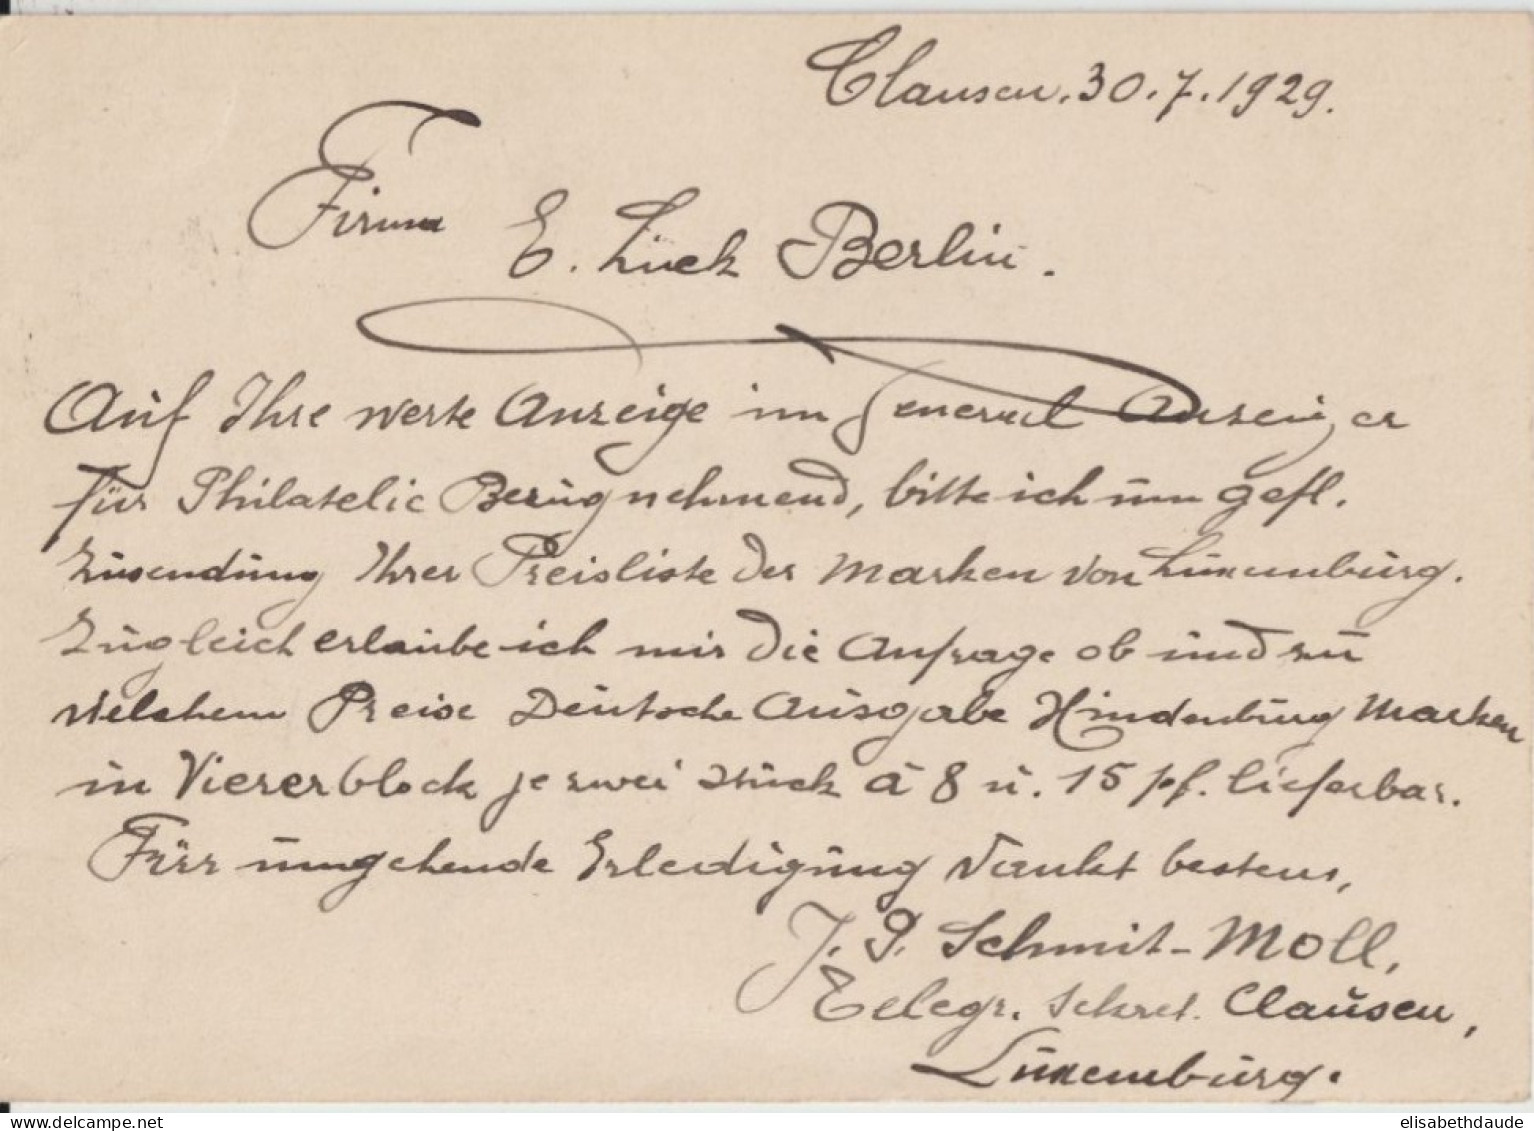 Clausen. 30.7.1929.
Firma E. Lück Berlin.
Auf Ihre werte Anzeige im General Anzeiger
für Philatelie Bezugnehmend, bitte ich um gefl.
Zusendung Ihrer Preisliste der Marken von Luxemburg.
Zugleich erlaube ich mir die Anfrage ob und zu
welchem Preise Deutsche Ausgabe Hindenburg Marken
in Viererblock je zwei Stück à 8 u. 15 pf. lieferbar.
Für umgehende Erledigung dankt bestens,
J. P. Schmit-Moll,
Telegr. Sekret. Clausen,
Luxemburg.
www.delcampe.net
elisabethdaude